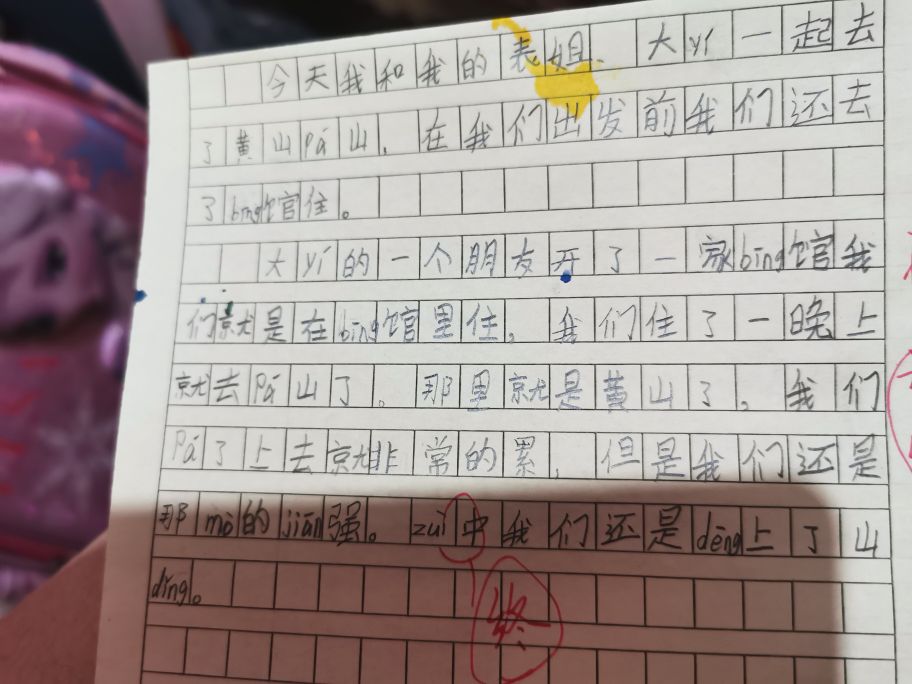 今天我和我的表姐、大yí一起去
了黄山pá山，在我们出发前我们还去
了bīng馆住。
大yí的一个朋友开了一家bīng馆我
们就是在bīng馆里住，我们住了一晚上
就去pá山了。那里就是黄山了，我们
pá了上去就非常的累，但是我们还是
那mò的jiān强。zuì中我们还是dēng上了山
dǐng。
终